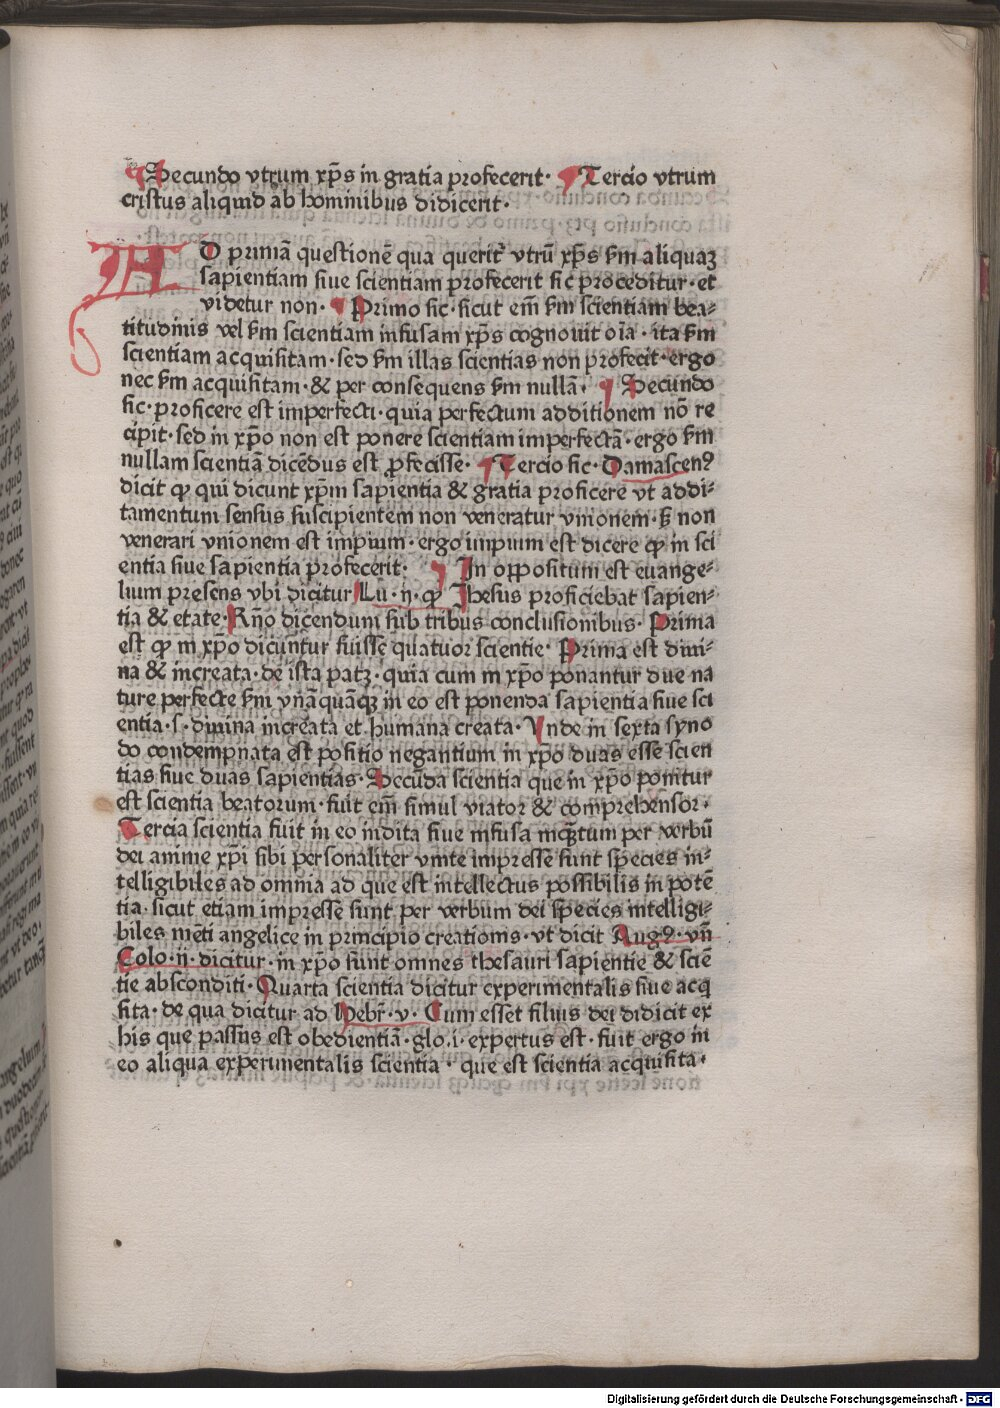 ¶ Secundo vtrum xp̄s in gratia profecerit· ¶ Tercio vtrum
cristus aliquid ab hominibus didicerit·
AD primā questionē qua querit᷑ vtrū xp̄s ẜm aliquaꝫ
sapientiam siue scientiam profecerit sic proceditur· et
videtur non· ¶ Primo sic· sicut em̄ ẜm scientiam bea⸗
titudinis vel ẜm scientiam infusam xp̄s cognouit oīa· ita ẜm
scientiam acquisitam· sed ẜm illas scientias non profecit· ergo
nec ẜm acquisitam· & per consequens ẜm nullā· ¶ Secundo
sic· proficere est imperfecti· quia perfectum additionem nō re
cipit· sed in xp̄o non est ponere scientiam imperfectā· ergo ẜm
nullam scientiā dicēdus est ꝓfecisse· ¶ Tercio sic· Damascenꝰ
dicit ꝙ qui dicunt xp̄m sapientia & gratia proficere vt addi⸗
tamentum sensus suscipientem non veneratur vnionem· ẜ non
venerari vnionem est impium· ergo impium est dicere ꝙ in sci
entia siue sapientia profecerit· ¶ In oppositum est euange⸗
lium presens vbi dicitur Lu·ij· ꝙ Jhesus proficiebat sapien⸗
tia & etate· Rn̄o dicendum sub tribus conclusionibus· Prima
est ꝙ in xp̄o dicuntur fuisse quatuor scientie· Prima est diui⸗
na & increata· de ista patꝫ· quia cum in xp̄o ponantur due na
ture perfecte ẜm vnāquāqꝫ in eo est ponenda sapientia siue sci
entia·s· diuina increata et humana creata· Vnde in sexta syno
do condempnata est positio negantium in xp̄o duas esse scien
tias siue duas sapientias· Secūda scientia que in xp̄o ponitur
est scientia beatorum· fuit em̄ simul viator & comprehensor·
Tercia scientia fuit in eo indita siue infusa inqᷓtum per verbū
dei anime xp̄i sibi personaliter vnite impresse sunt species in⸗
telligibiles ad omnia ad que est intellectus possibilis in potē
tia· sicut etiam impresse sunt per verbum dei species intelligi⸗
biles mēti angelice in principio creationis· vt dicit Augꝰ· vn̄
Colo·ij· dicitur· in xp̄o sunt omnes thesauri sapientie & sciē
tie absconditi· Quarta scientia dicitur experimentalis siue acq
sita· de qua dicitur ad Hebr̄·v· Cum esset filius dei didicit ex
his que passus est obedientiā· glo·i· expertus est· fuit ergo in
eo aliqua experimentalis scientia· que est scientia acquisita·
Digitalisierung gefördert durch die Deutsche Forschungsgemeinschaft - DFG